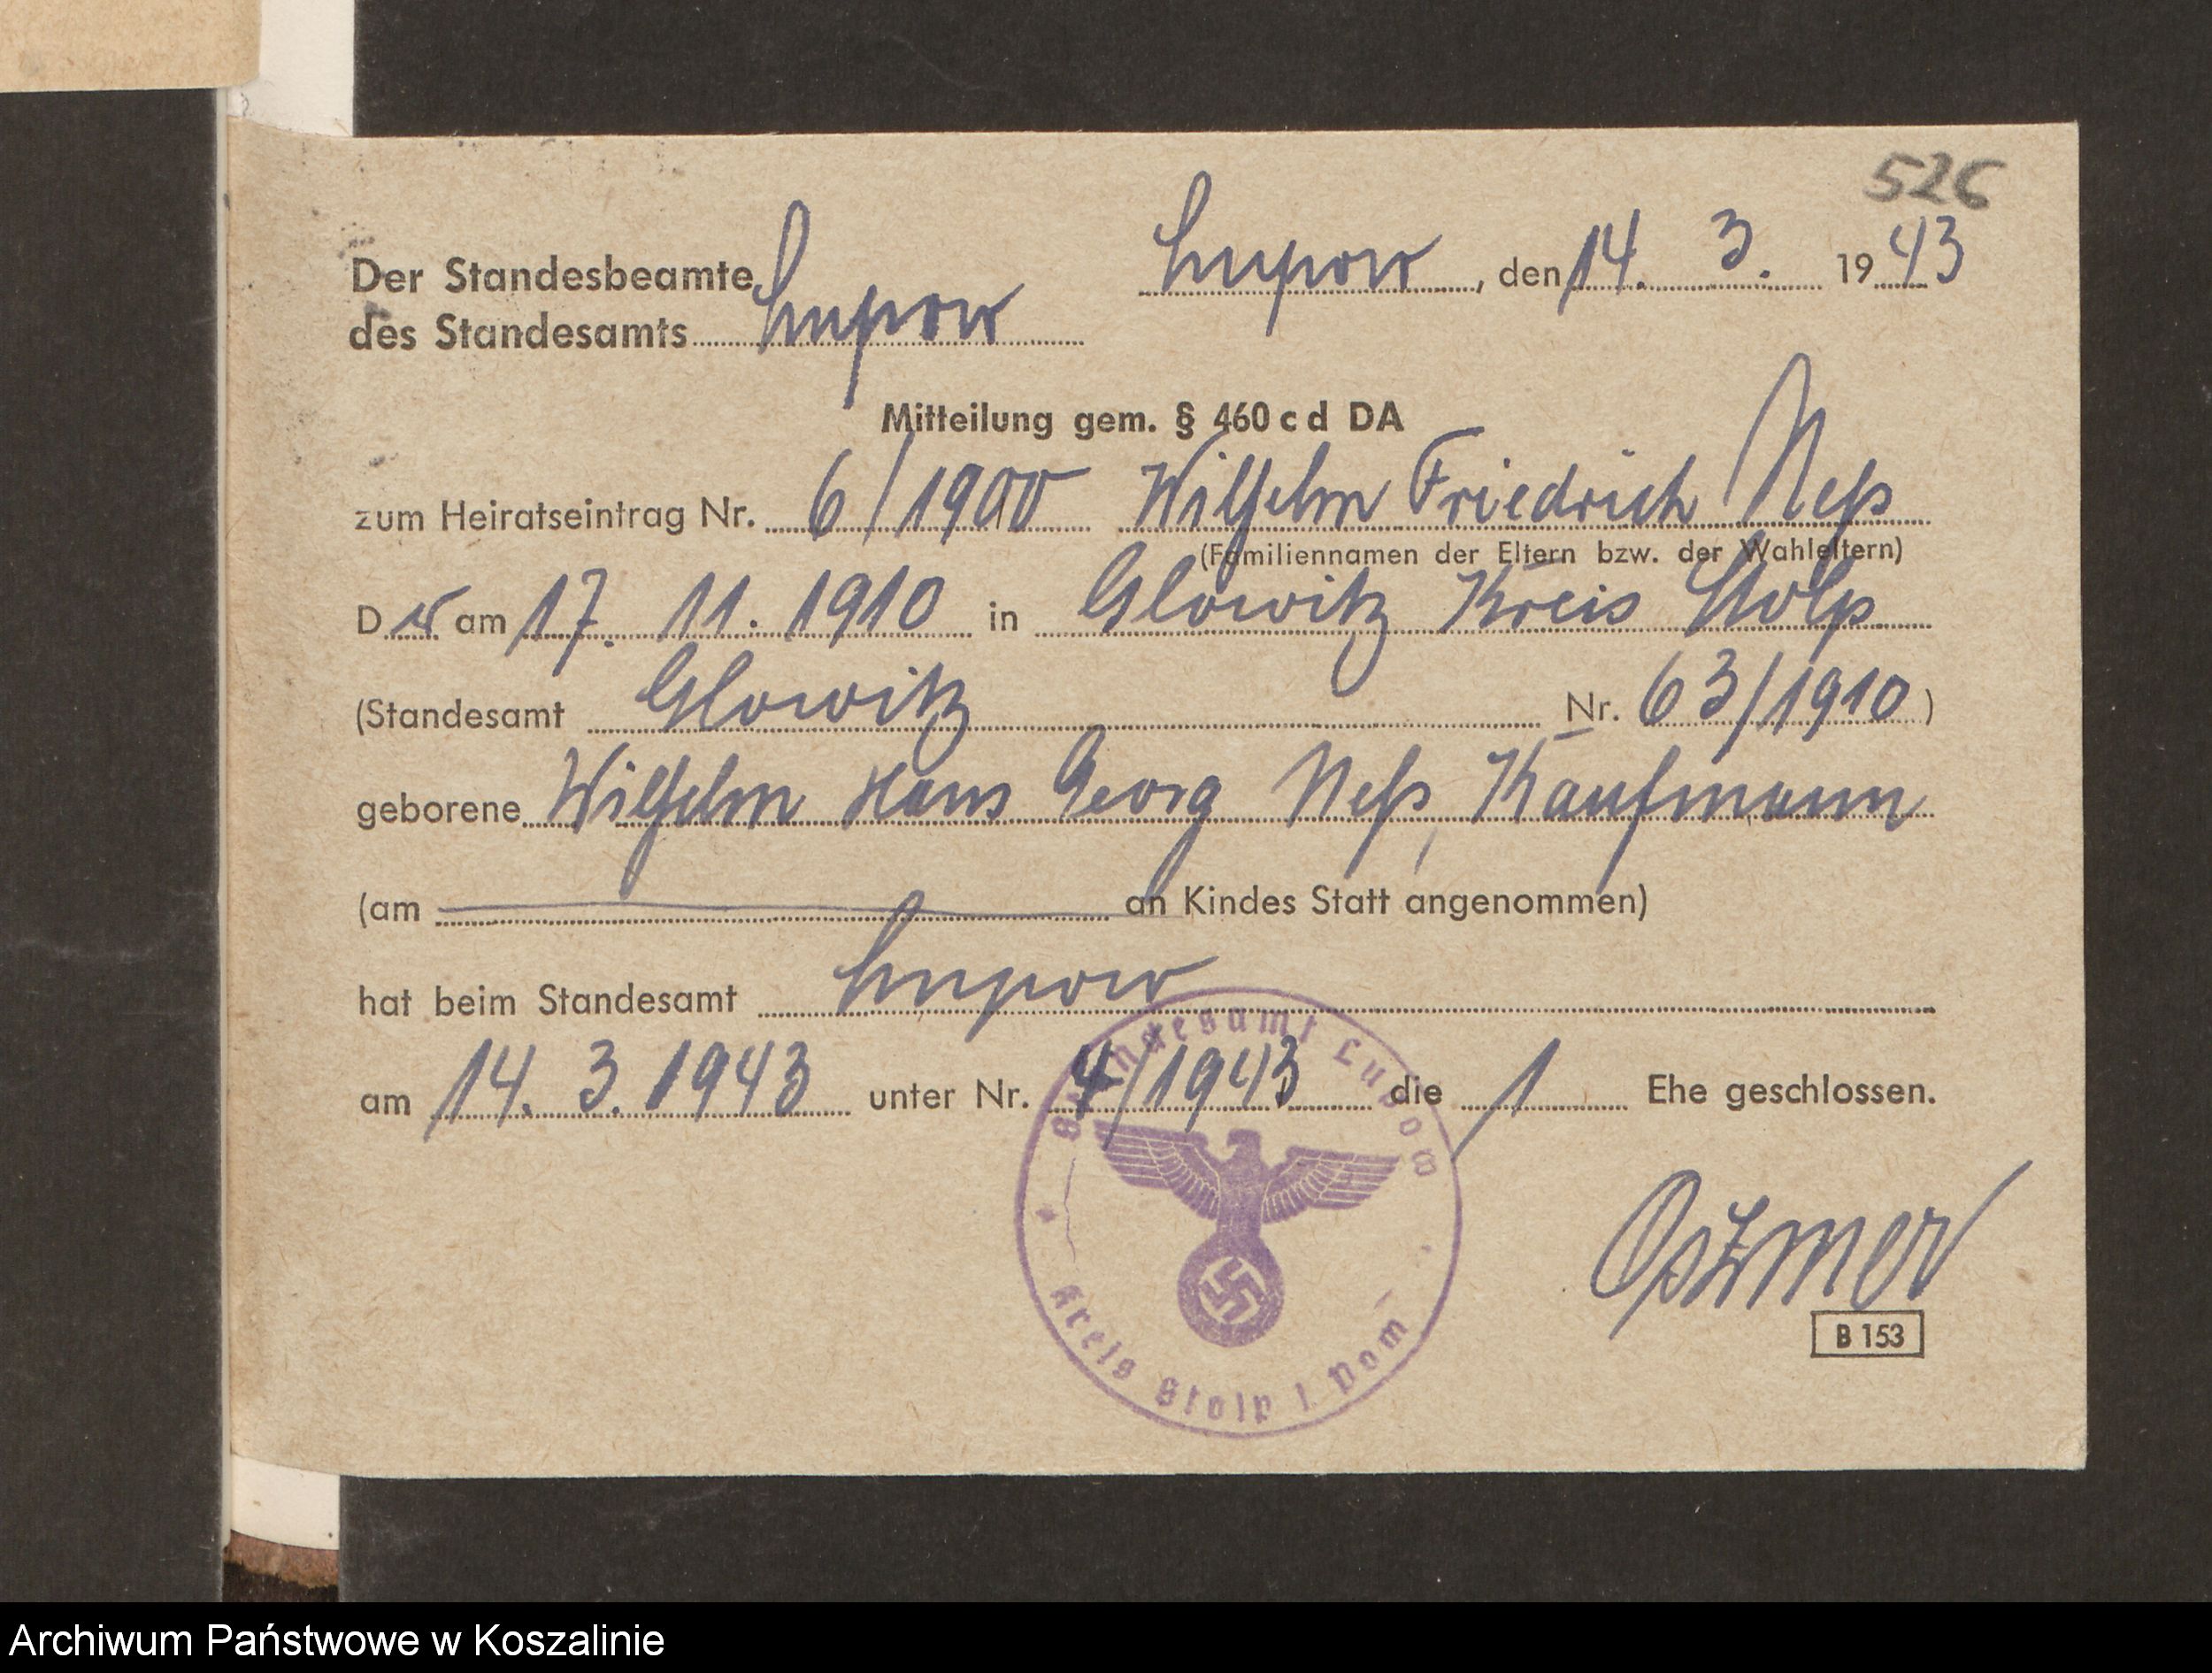 526
Der Standesbeamte
des Standesamts Lupow
Lupow, den 14. 3. 1943
Mitteilung gem. § 460 c d DA
zum Heiratseintrag Nr. 6/1900 Wilhelm Friedrich Neß
(Familiennamen der Eltern bzw. der Wahleltern)
Der am 17. 11. 1910 in Glowitz Kreis Stolp
(Standesamt Glowitz Nr. 63/1910)
geborene Wilhelm Hans Georg Neß, Kaufmann
(am an Kindes Statt angenommen)
hat beim Standesamt Lupow
am 14. 3. 1943 unter Nr. 4/1943 die 1 Ehe geschlossen.
Standesamt Lupow
Kreis Stolp i. Pom
B 153
Archiwum Państwowe w Koszalinie